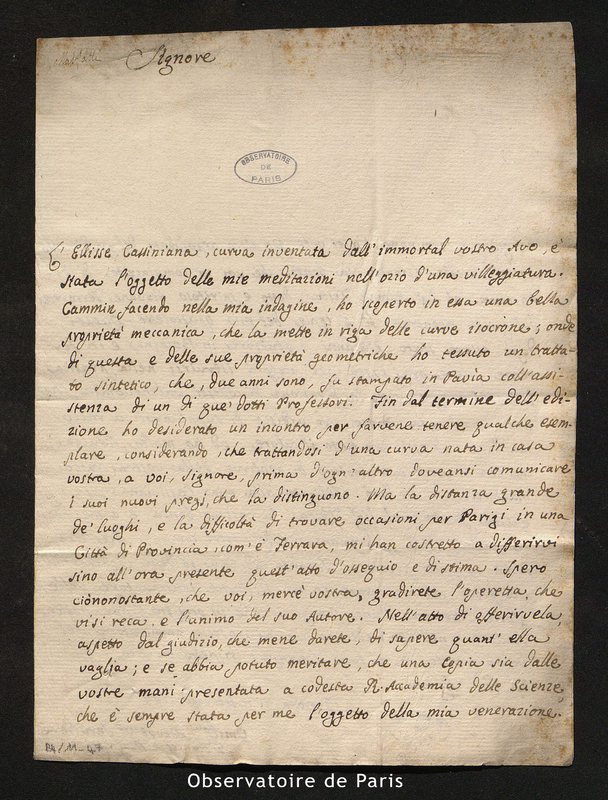 Signore
OBSERVATOIRE
DE
PARIS
L' Ellisse Cassiniana, curva inventata dall' immortal vostro Avo, è
stata l'oggetto delle mie meditazioni nell' ozio d'una villeggiatura.
Cammin facendo nella mia indagine, ho scoperto in essa una bella
proprietà meccanica, che la mette in riga delle curve isocrone; onde
di questa e delle sue proprietà geometriche ho tessuto un tratta-
to sintetico, che, due anni sono, fu stampato in Pavia coll' assi-
stenza di un di que' dotti Professori. Fin dal termine dell' edi-
zione ho desiderato un incontro per farvene tenere qualche esem-
plare, considerando, che trattandosi d'una curva nata in casa
vostra, a voi, Signore, prima d'ogn' altro doveansi comunicare
i suoi nuovi pregi, che la distinguono. Ma la distanza grande
de' luoghi, e la difficoltà di trovare occasioni per Parigi in una
Città di Provincia, com' è Ferrara, mi han costretto a differirvi
sino all' ora presente quest' atto d'ossequio e di stima. Spero
ciònonostante, che voi, mercè vostra, gradirete l'operetta, che
vi si reca, e l'animo del suo Autore. Nell' atto di offerirvela,
aspetto dal giudizio, che mene darete, di sapere quant' ella
vaglia; e se abbia potuto meritare, che una copia sia dalle
vostre mani presentata a codesta R. Accademia delle Scienze,
che è sempre stata per me l'oggetto della mia venerazione.
B4/11-47
Observatoire de Paris